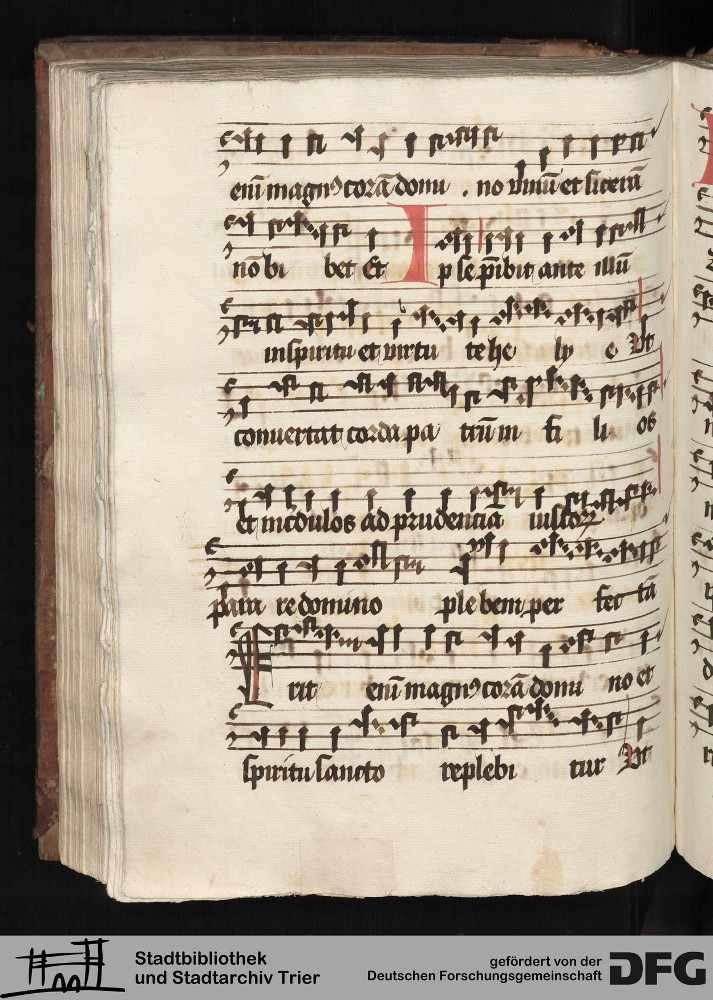 eni magnꝰ corā domi . no vinū et sicerā
nō bi bet Et Ip se p̄ibit ante illū
in spiritu et virtu te he ly e Vt
convertat corda pa trū in fi li os
et incdulos ad prudenciā iustoꝝ
para re domino ple bem per fec tā
Erit eni magnꝰ corā domi no et
spiritu sancto replebi tur Vt
Stadtbibliothek
und Stadtarchiv Trier
gefördert von der
Deutschen Forschungsgemeinschaft
DFG